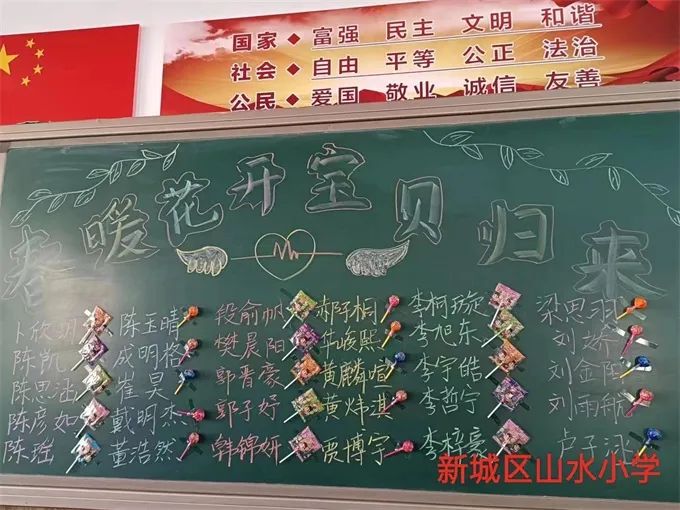 国家◆富强 民主 文明 和谐
社会◆自由 平等 公正 法治
公民◆爱国 敬业 诚信 友善
春暖花开宝贝归来
卜欣玥 陈玉晴 段俞帆 郝梓桐 李柯璇 梁思羽
陈凯 成明格 樊晨阳 华峻熙 李旭东 刘娇
陈思涵 崔昊 郭晋豪 黄麟煊 李宇皓 刘金阳
陈彦如 戴明杰 郭子妤 黄炜淇 李哲宁 刘雨航
陈瑶 董浩然 韩锦妍 贾博宇 李梓豪 卢子涵
新城区山水小学